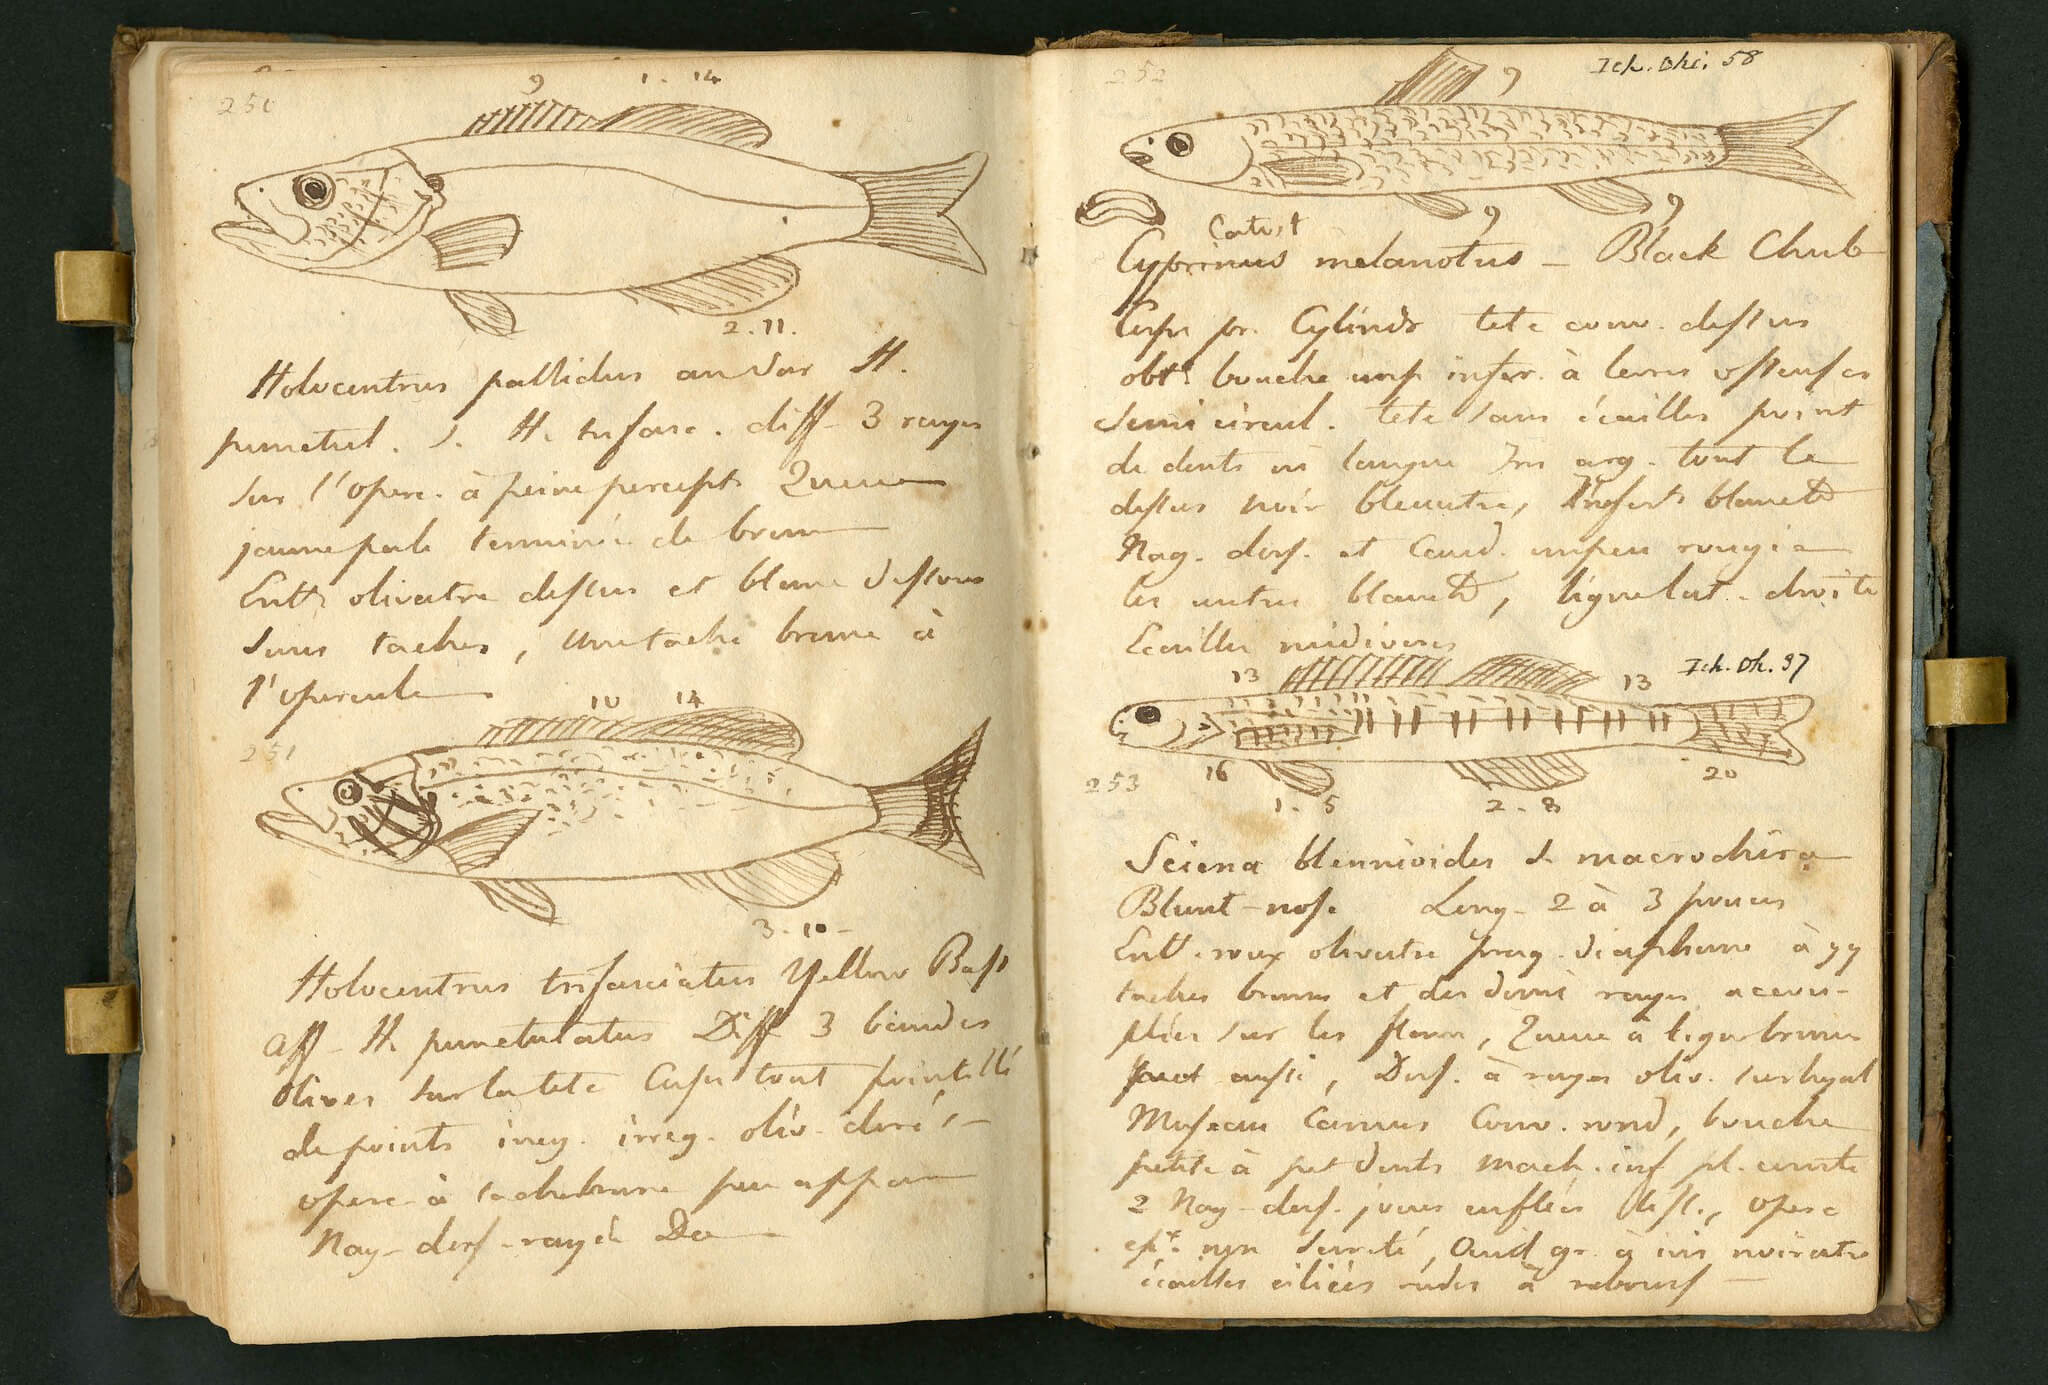 250
9 1 - 14
2 . 11.
Holocentrus pallidus an var H.
punctul. s. H. trifasc. diff- 3 rayes
sur l'operc. à peine percept. Queue
jaune pale terminée de brun
Entt. olivatre dessus et blanc dessous
sans taches, une tache brune à
l'opercule
10 14
251
3 - 10 -
Holocentrus trifasciatus Yellow Bass
aff- H. punctulatus Diff 3 bandes
olives sur la tete Corps tout pointillé
de points ineg. irreg. oliv. dorés-
operc- à tache brune peu appar
Nag- dors- rayée Do
252
Ich. Ohi. 58
9
9 9
Catost
Cyprinus melanotus - Black Chub
Corps pr. Cylindr tete conv. dessus
obt. bouche infer. à levres
semi circul. tete sans écailles point
de dents ni langue Iris arg. tout le
dessus noir bleuatre, blanch
Nag. dors. et Caud. un peu rougie
les autres blanch, ligne lat. droite
Ecailles
13 13 Ich. Oh. 97
16 20
253
1 . 5 2 - 8
Sciena blennioides s. macrochira
Blunt-nose Long- 2 à 3 pouces
Entt. roux olivatre diaphane à qq
taches brunes et des demi rayes accou-
plées sur les flancs, Queue à lignes brunes
pect aussi, Dors. à rayes oliv. sur hyal
Museau Camus Conv. rond, bouche
petite à pet dents mach. inf pl. courte
2 Nag- dors. joues enflées lisse, operc
ep. non serreté, Oeil gr. à iris noiratre
écailles ciliées rudes à rebours